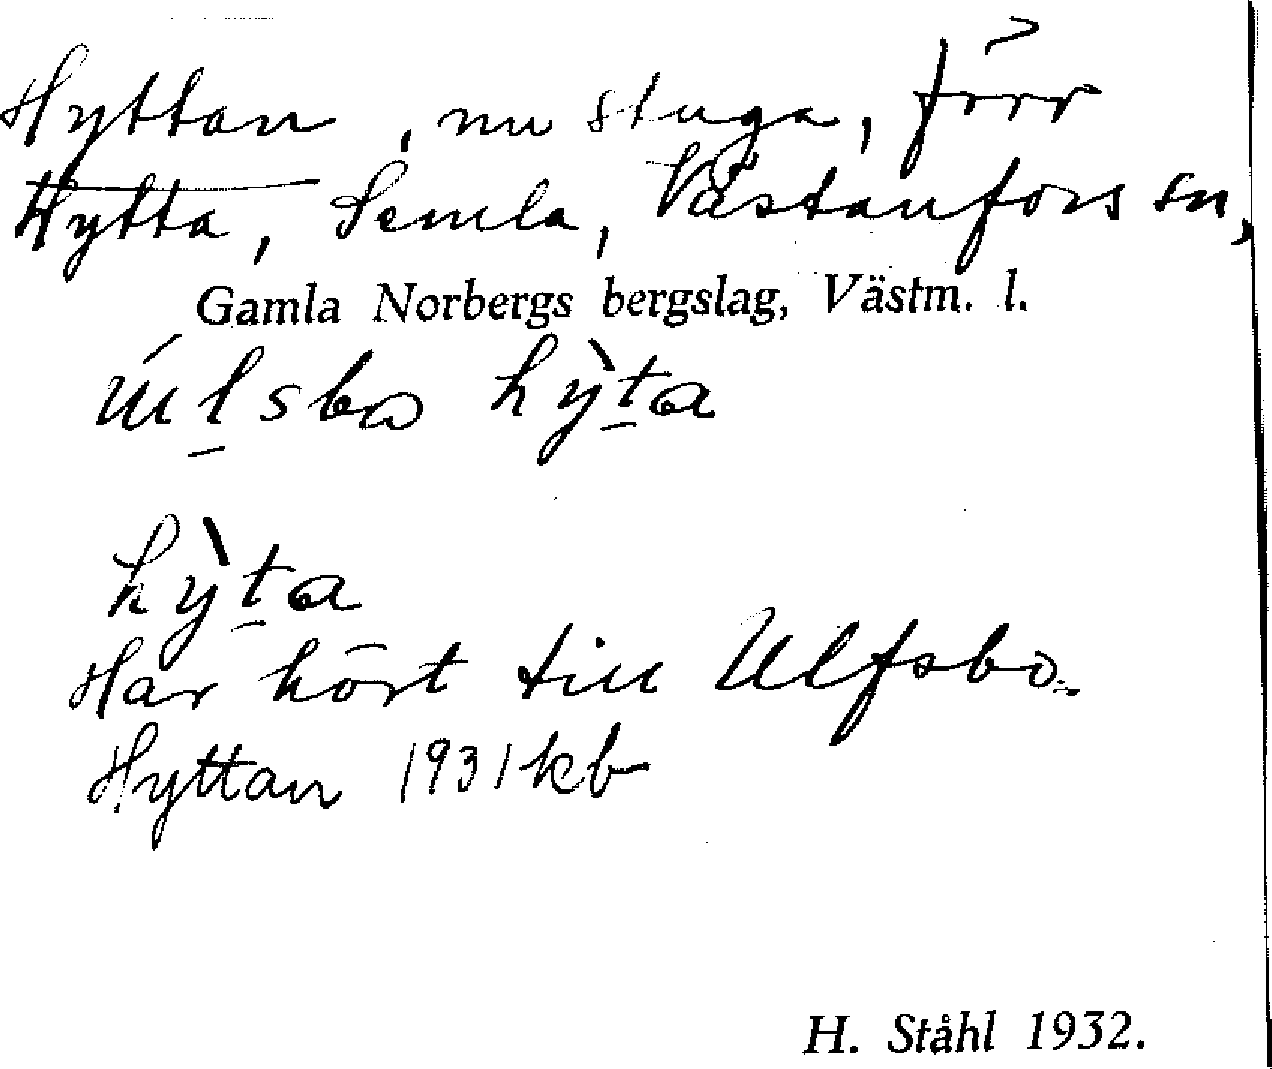 Hyttan, nu stuga, förr
Hytta, Semla, Västanfors sn,
Gamla Norbergs bergslag, Västm. l.
hỳta
hỳta
Har hört till Ulfsbo.
Hyttan 1931 kb
H. Ståhl 1932.